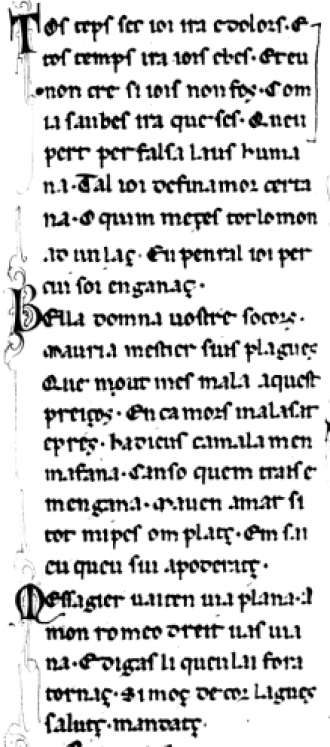 Tos teps sec ioi ira e dolors. E
tos temps ira iois ebes. Et eu
non cre si iois non fos. Com
ia saubes ira que ses. Queu
pert per falsa laus huma
na. Tal ioi definamor certa
na. O quim meçes tot lo mon
ad un laç. Eu penral ioi per
cui soi enganaç.
Bella domna uostre socors.
Mauria mestier sius plagues
Que mout mes mala aquest
preiços. En camors mal asat
epres. hai deus camala men
mafana. Canso quem traise
mengana. Mauen amar si
tot mi pes om plaç. Em sai
cu queu sui apoderaç.
Messagier uaiten uia plana. A
mon romeo dreit uas uia
na. E digas li queu lai fora
tornaç. Si moç de cor lagues
saluç. mandaç.